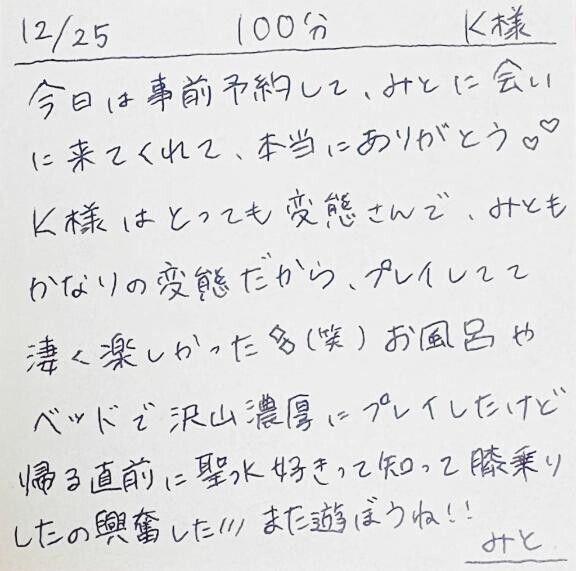 12/25 100分 K様
今日は事前予約して、みとに会い
に来てくれて、本当にありがとう♡♡
K様はとっても変態さんで、みとも
かなりの変態だから、プレイしてて
凄く楽しかった多(笑)お風呂や
ベッドで沢山濃厚にプレイしたけど
帰る直前に聖水好きって知って膝乗り
したの興奮した///また遊ぼうね!!
みと